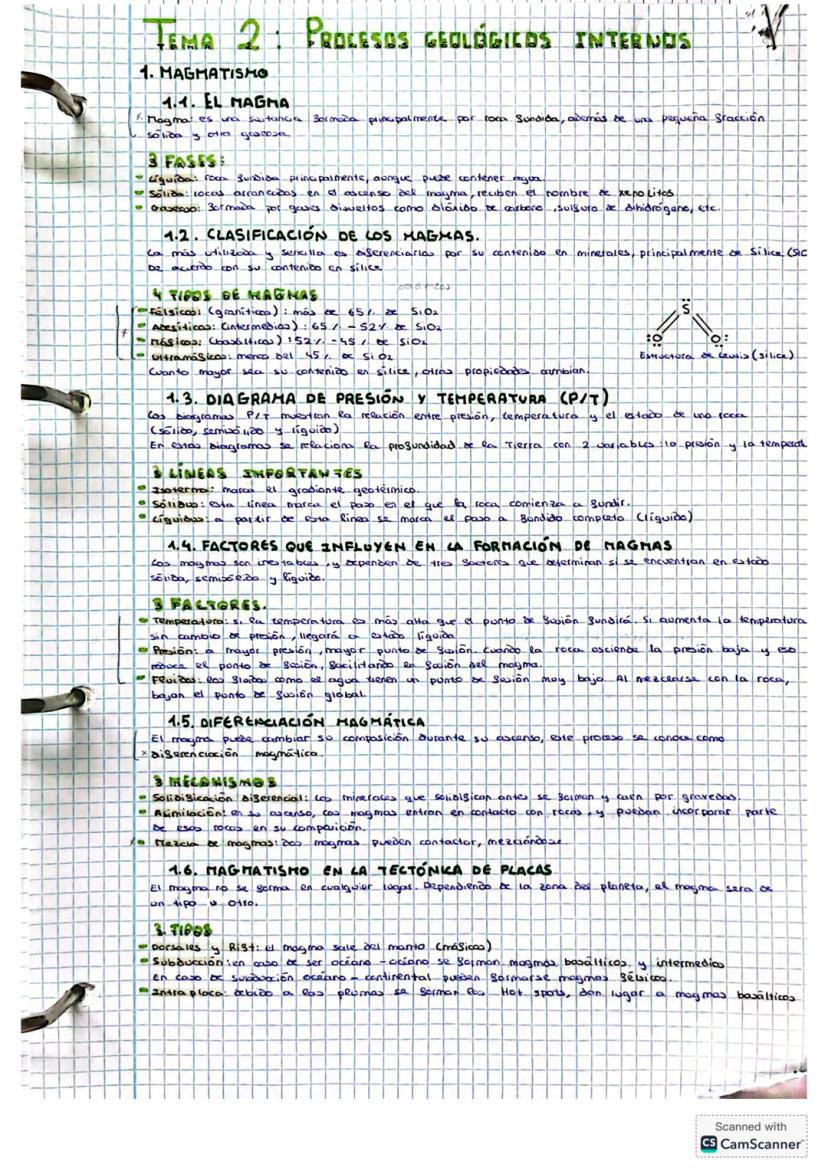 TEMA 2: PROCESOS GEOLÓGICOS INTERNOS
1. MAGMATISMO
1.1. EL MAGMA
* Magma: es una sustancia formada principalmente por roca fundida, además de una pequeña fracción
sólida y otra gaseosa
3 FASES:
Líquida: roca fundida principalmente, aunque puede contener agua.
Sólida: rocas arrancadas en el ascenso del magma, reciben el nombre de xenolitos
Gaseosa: formada por gases disueltos como dióxido de carbono, sulfuro de dihidrógeno, etc.
1.2. CLASIFICACIÓN DE LOS MAGMAS.
La más utilizada y sencilla es diferenciarlos por su contenido en minerales, principalmente de Sílice (SiC
De acuerdo con su contenido en sílice
4 TIPOS DE MAGMAS
Félsicos: (graníticos): más de 65% de SiO2
Andesíticos: (intermedios): 65% - 52% de SiO2
Máficos: (basálticos): 52% - 45% de SiO2
Ultramáficos: menos del 45% de SiO2
Cuanto mayor sea su contenido en sílice, otras propiedades cambian.
S
:O O:
Estructura de Lewis (sílice)
1.3. DIAGRAMA DE PRESIÓN Y TEMPERATURA (P/T)
Los diagramas P/T muestran la relación entre presión, temperatura y el estado de una roca
(sólido, semisólido y líquido)
En estos diagramas se relaciona la profundidad de la Tierra con 2 variables: la presión y la temperat
3 LÍNEAS IMPORTANTES
Isoterma: marca el gradiante geotérmico.
Sólidus: esta línea marca el paso en el que la roca comienza a fundir.
Líquidus: a partir de esta línea se marca el paso a fundido completo (líquido)
1.4. FACTORES QUE INFLUYEN EN LA FORMACIÓN DE MAGMAS
Los magmas son inestables, y dependen de tres factores que determinan si se encuentran en estado
sólido, semisólido y líquido.
3 FACTORES.
Temperatura: si la temperatura es más alta que el punto de fusión fundirá. Si aumenta la temperatura
sin cambio de presión, llegará a estado líquido
Presión: a mayor presión, mayor punto de fusión. Cuando la roca asciende la presión baja y eso
reduce el punto de fusión, facilitando la fusión del magma.
Fluidos: los fluidos como el agua tienen un punto de fusión muy bajo. Al mezclarse con la roca,
bajan el punto de fusión global.
1.5. DIFERENCIACIÓN MAGMÁTICA
El magma puede cambiar su composición durante su ascenso, este proceso se conoce como
* diferenciación magmática.
3 MECANISMOS
Solidificación diferencial: los minerales que solidifican antes se forman y caen por gravedad.
Asimilación: en su ascenso, los magmas entran en contacto con rocas, y pueden incorporar parte
de esas rocas en su composición.
Mezcla de magmas: dos magmas pueden contactar, mezclándose.
1.6. MAGMATISMO EN LA TECTÓNICA DE PLACAS
El magma no se forma en cualquier lugar. Dependiendo de la zona del planeta, el magma será de
un tipo u otro.
3 TIPOS
Dorsales y Rift: el magma sale del manto (máficos)
Subducción: en caso de ser océano - océano se forman magmas basálticos y intermedios
En caso de subducción océano - continental pueden formarse magmas félsicos.
Intraplaca: debido a las plumas se forman los Hot spots, dan lugar a magmas basálticos
Scanned with
CS CamScanner